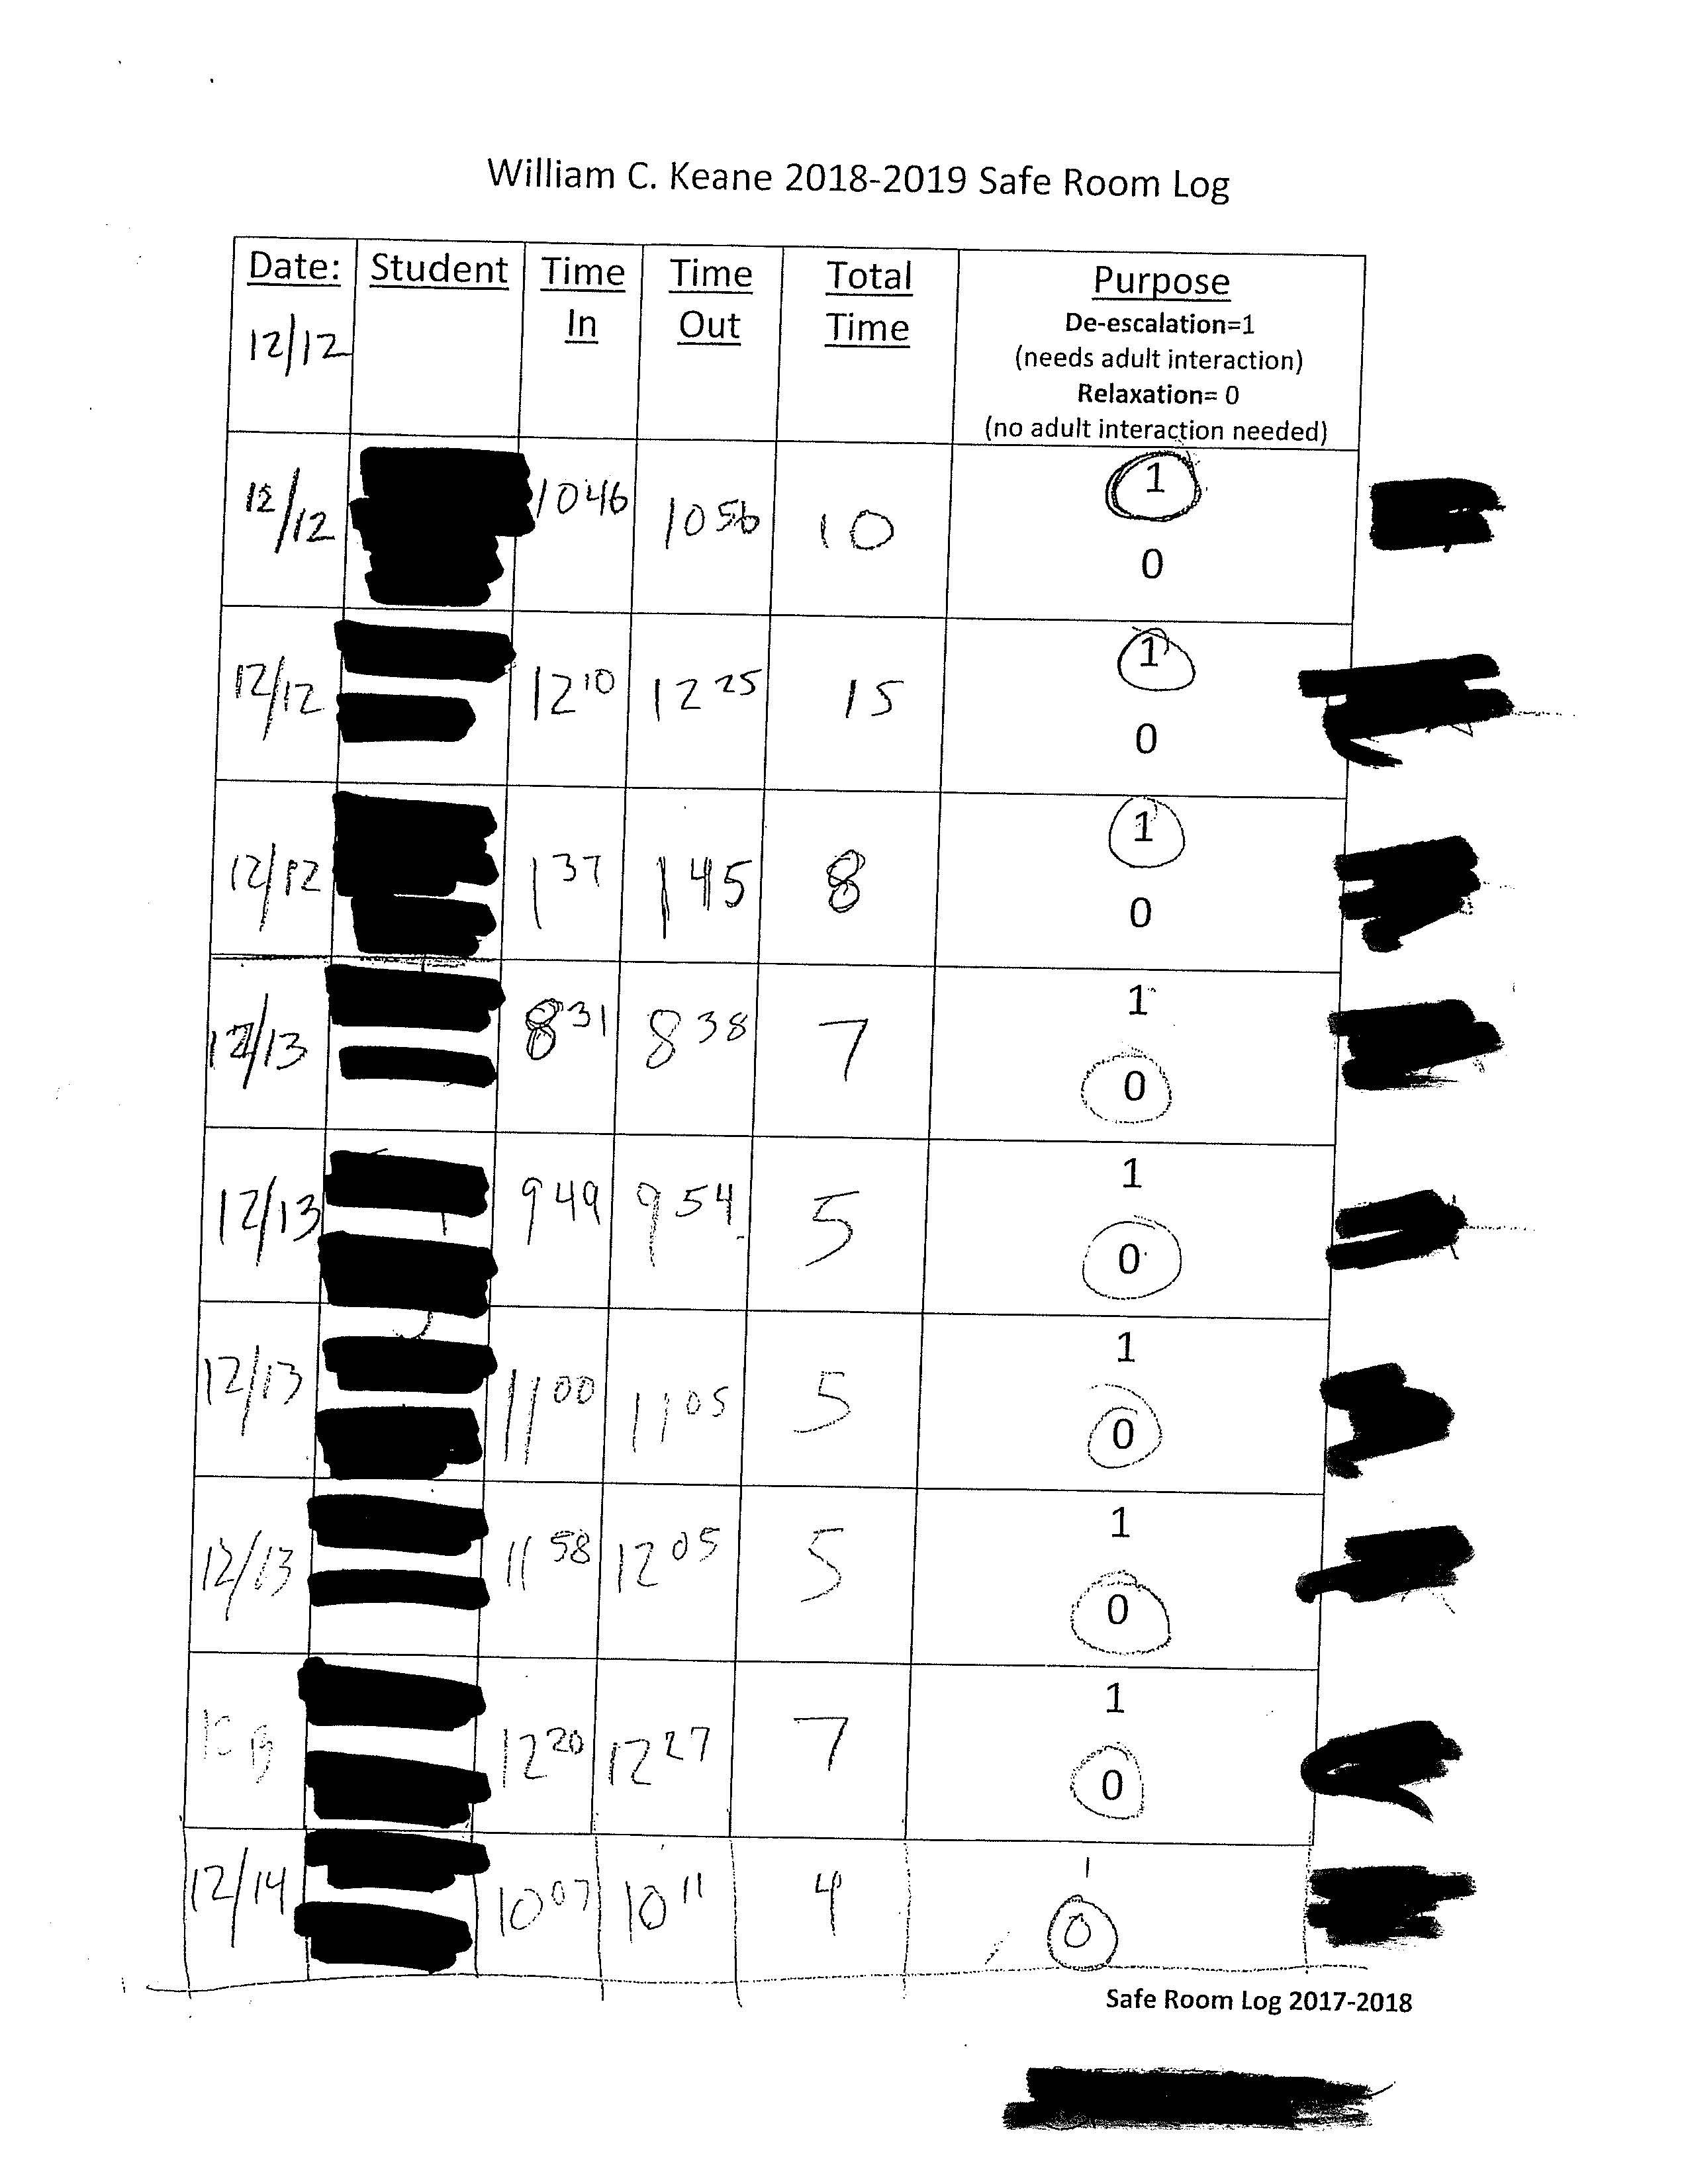 William C. Keane 2018-2019 Safe Room Log
Date: Student Time In Time Out Total Time Purpose
12/12 De-escalation=1
(needs adult interaction)
Relaxation= 0
(no adult interaction needed)
12/12 1046 1056 10 1
0
12/12 12 10 12 25 15 1
0
12/12 1 37 1 45 8 1
0
12/13 8 31 8 38 7 1
0
12/13 9 49 9 54 5 1
0
12/13 11 00 11 05 5 1
0
12/13 11 58 12 05 5 1
0
12 20 12 27 7 1
0
12/14 10 07 10 11 4 1
0
Safe Room Log 2017-2018